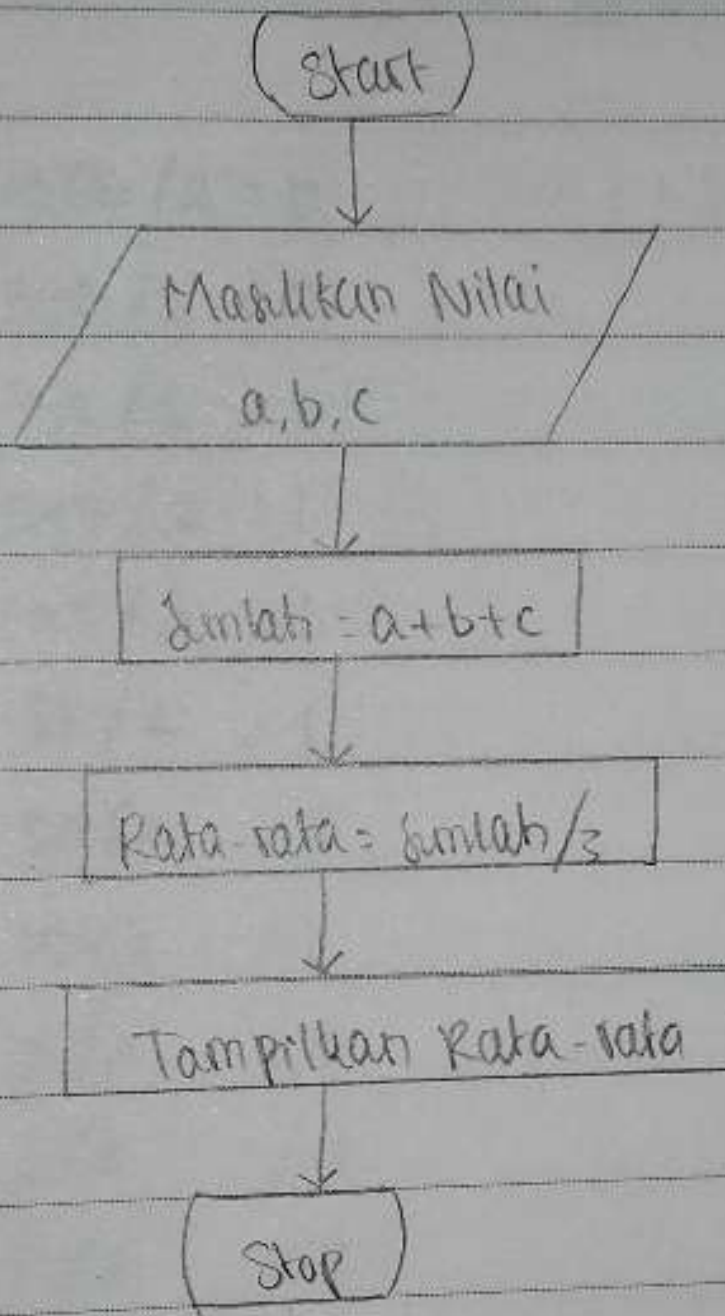 Start
Masukkan Nilai
a, b, c
Jumlah = a+b+c
Rata-rata = Jumlah/3
Tampilkan Rata-rata
Stop